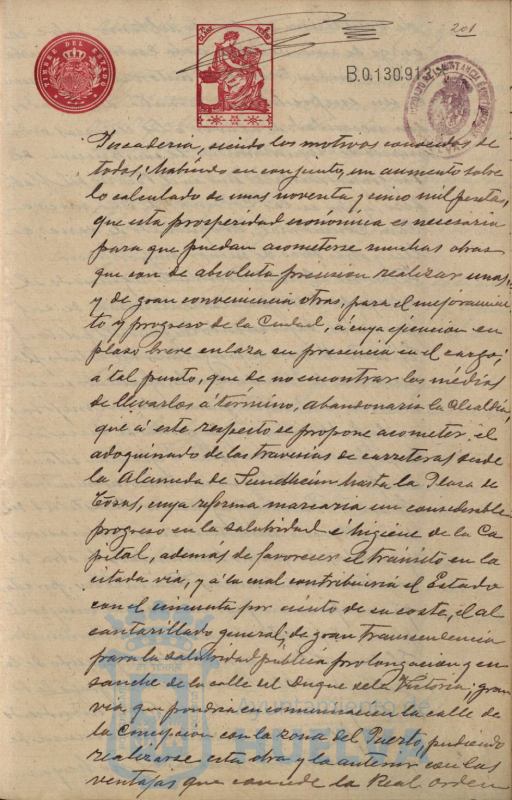 201
TIMBRE DEL ESTADO
B.0.130.912
siendo los motivos conocidos de
todos; habiendo en conjunto, un aumento sobre
lo calculado de unas noventa y cinco mil pesetas,
que esta prosperidad económica es necesaria
para que puedan acometerse muchas obras
que son de absoluta precision realizar unas,
y de gran conveniencia otras, para el mejoramien
to y progreso de la Ciudad, á cuya ejecucion en
plazo breve enlaza su presencia en el cargo;
á tal punto, que de no encontrar los médios
de llevarlos á término, abandonaria la Alcaldia,
que á este respecto se propone acometer el
adoquinado de las travesias de carreteras desde
la Alameda de Sundheim hasta la Plaza de
Toros, cuya reforma marcaria un considerable
progreso en la salubridad é higiene de la Ca
pital, además de favorecer el tránsito en la
citada via, y á la cual contribuirá el Estado
con el cincuenta por ciento de su coste, el al
cantarillado general; de gran transcendencia
para la salubridad pública prolongacion y en
sanche de la calle del Duque de la Victoria; gran
via que pondra en comunicacion la calle de
la Concepcion con la zona del Puerto, pudiendo
realizarse esta obra y la anterior con las
ventajas que concede la Real orden
Ayuntamiento de
HUELVA